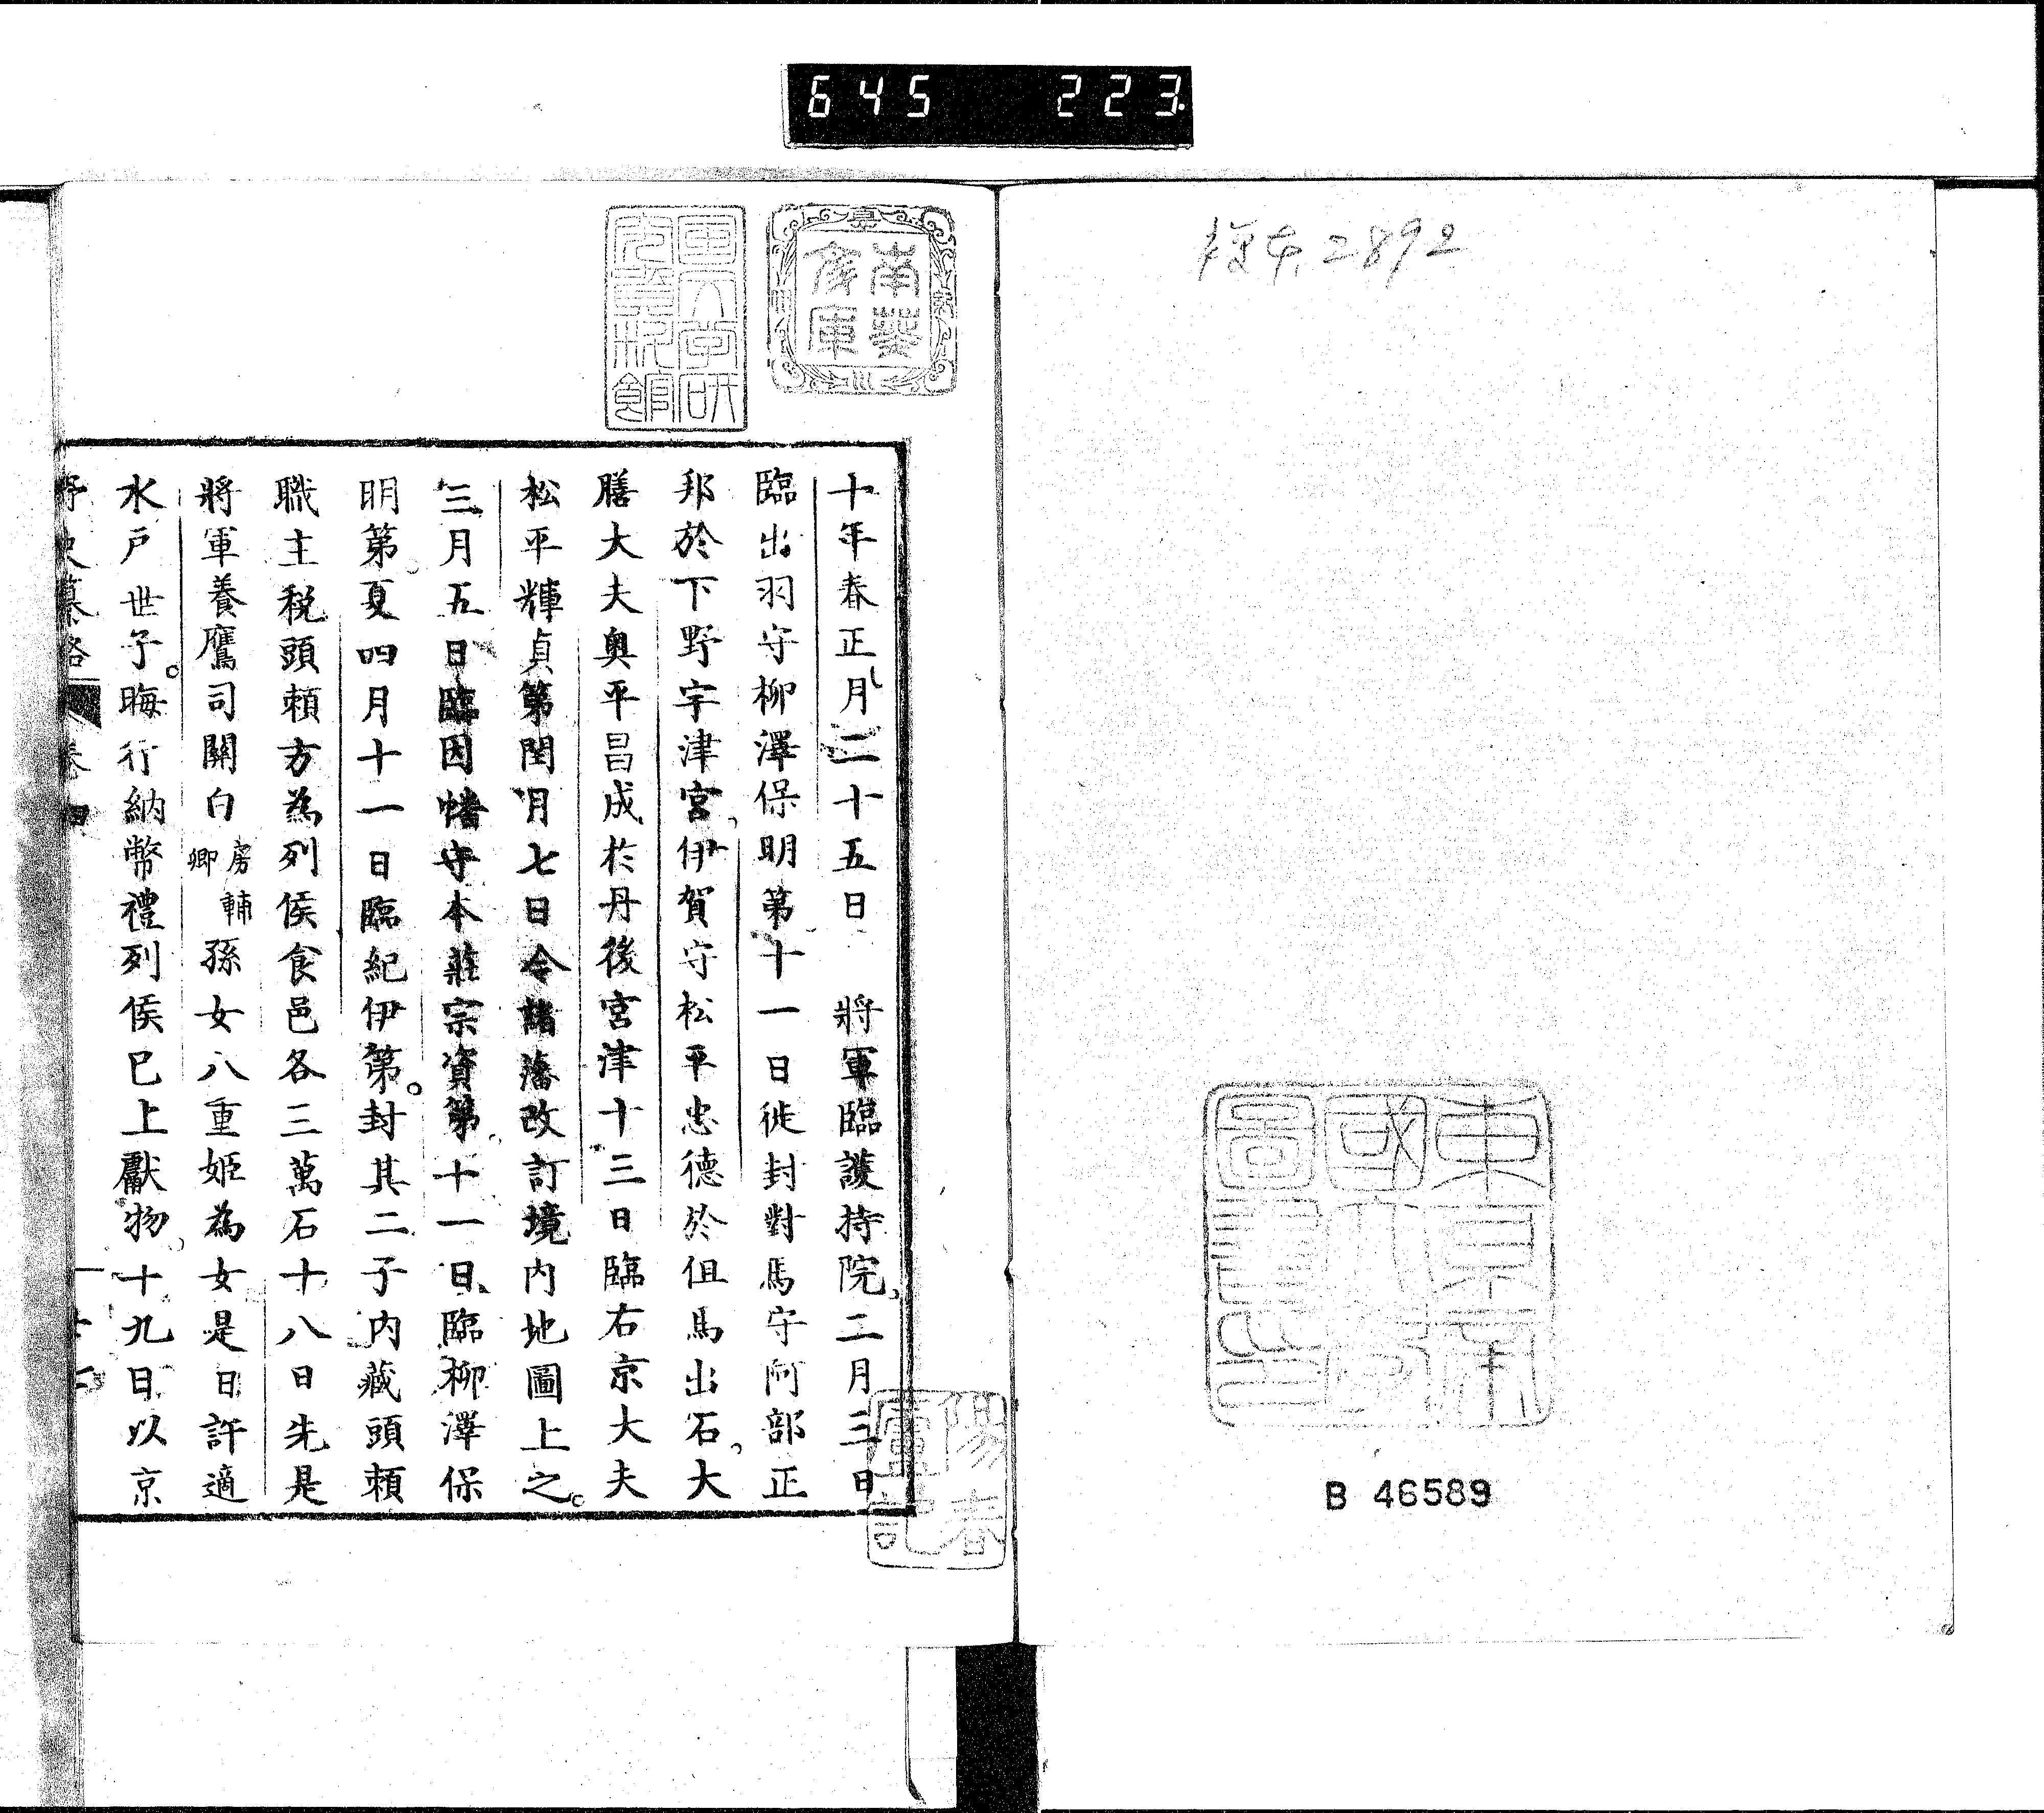 645 223
2892
B 46589
南葵
文庫
陽春
廬記
十年春正月二十五日　將軍臨護持院二月三日
臨出羽守柳澤保明第十一日徙封對馬守阿部正
邦於下野宇津宮伊賀守松平忠德於但馬出石大
膳大夫奥平昌成於丹後宮津十三日臨右京大夫
松平輝貞第閏月七日令諸藩改訂境内地圖上之
三月五日臨因幡守本莊宗資第十一日臨柳澤保
明第夏四月十一日臨紀伊第封其二子内藏頭賴
職主税頭賴方為列侯食邑各三萬石十八日先是
將軍養鷹司關白房輔卿孫女八重姬為女是日許適
水戶世子晦行納幣禮列侯已上獻物十九日以京
野史纂略 卷四